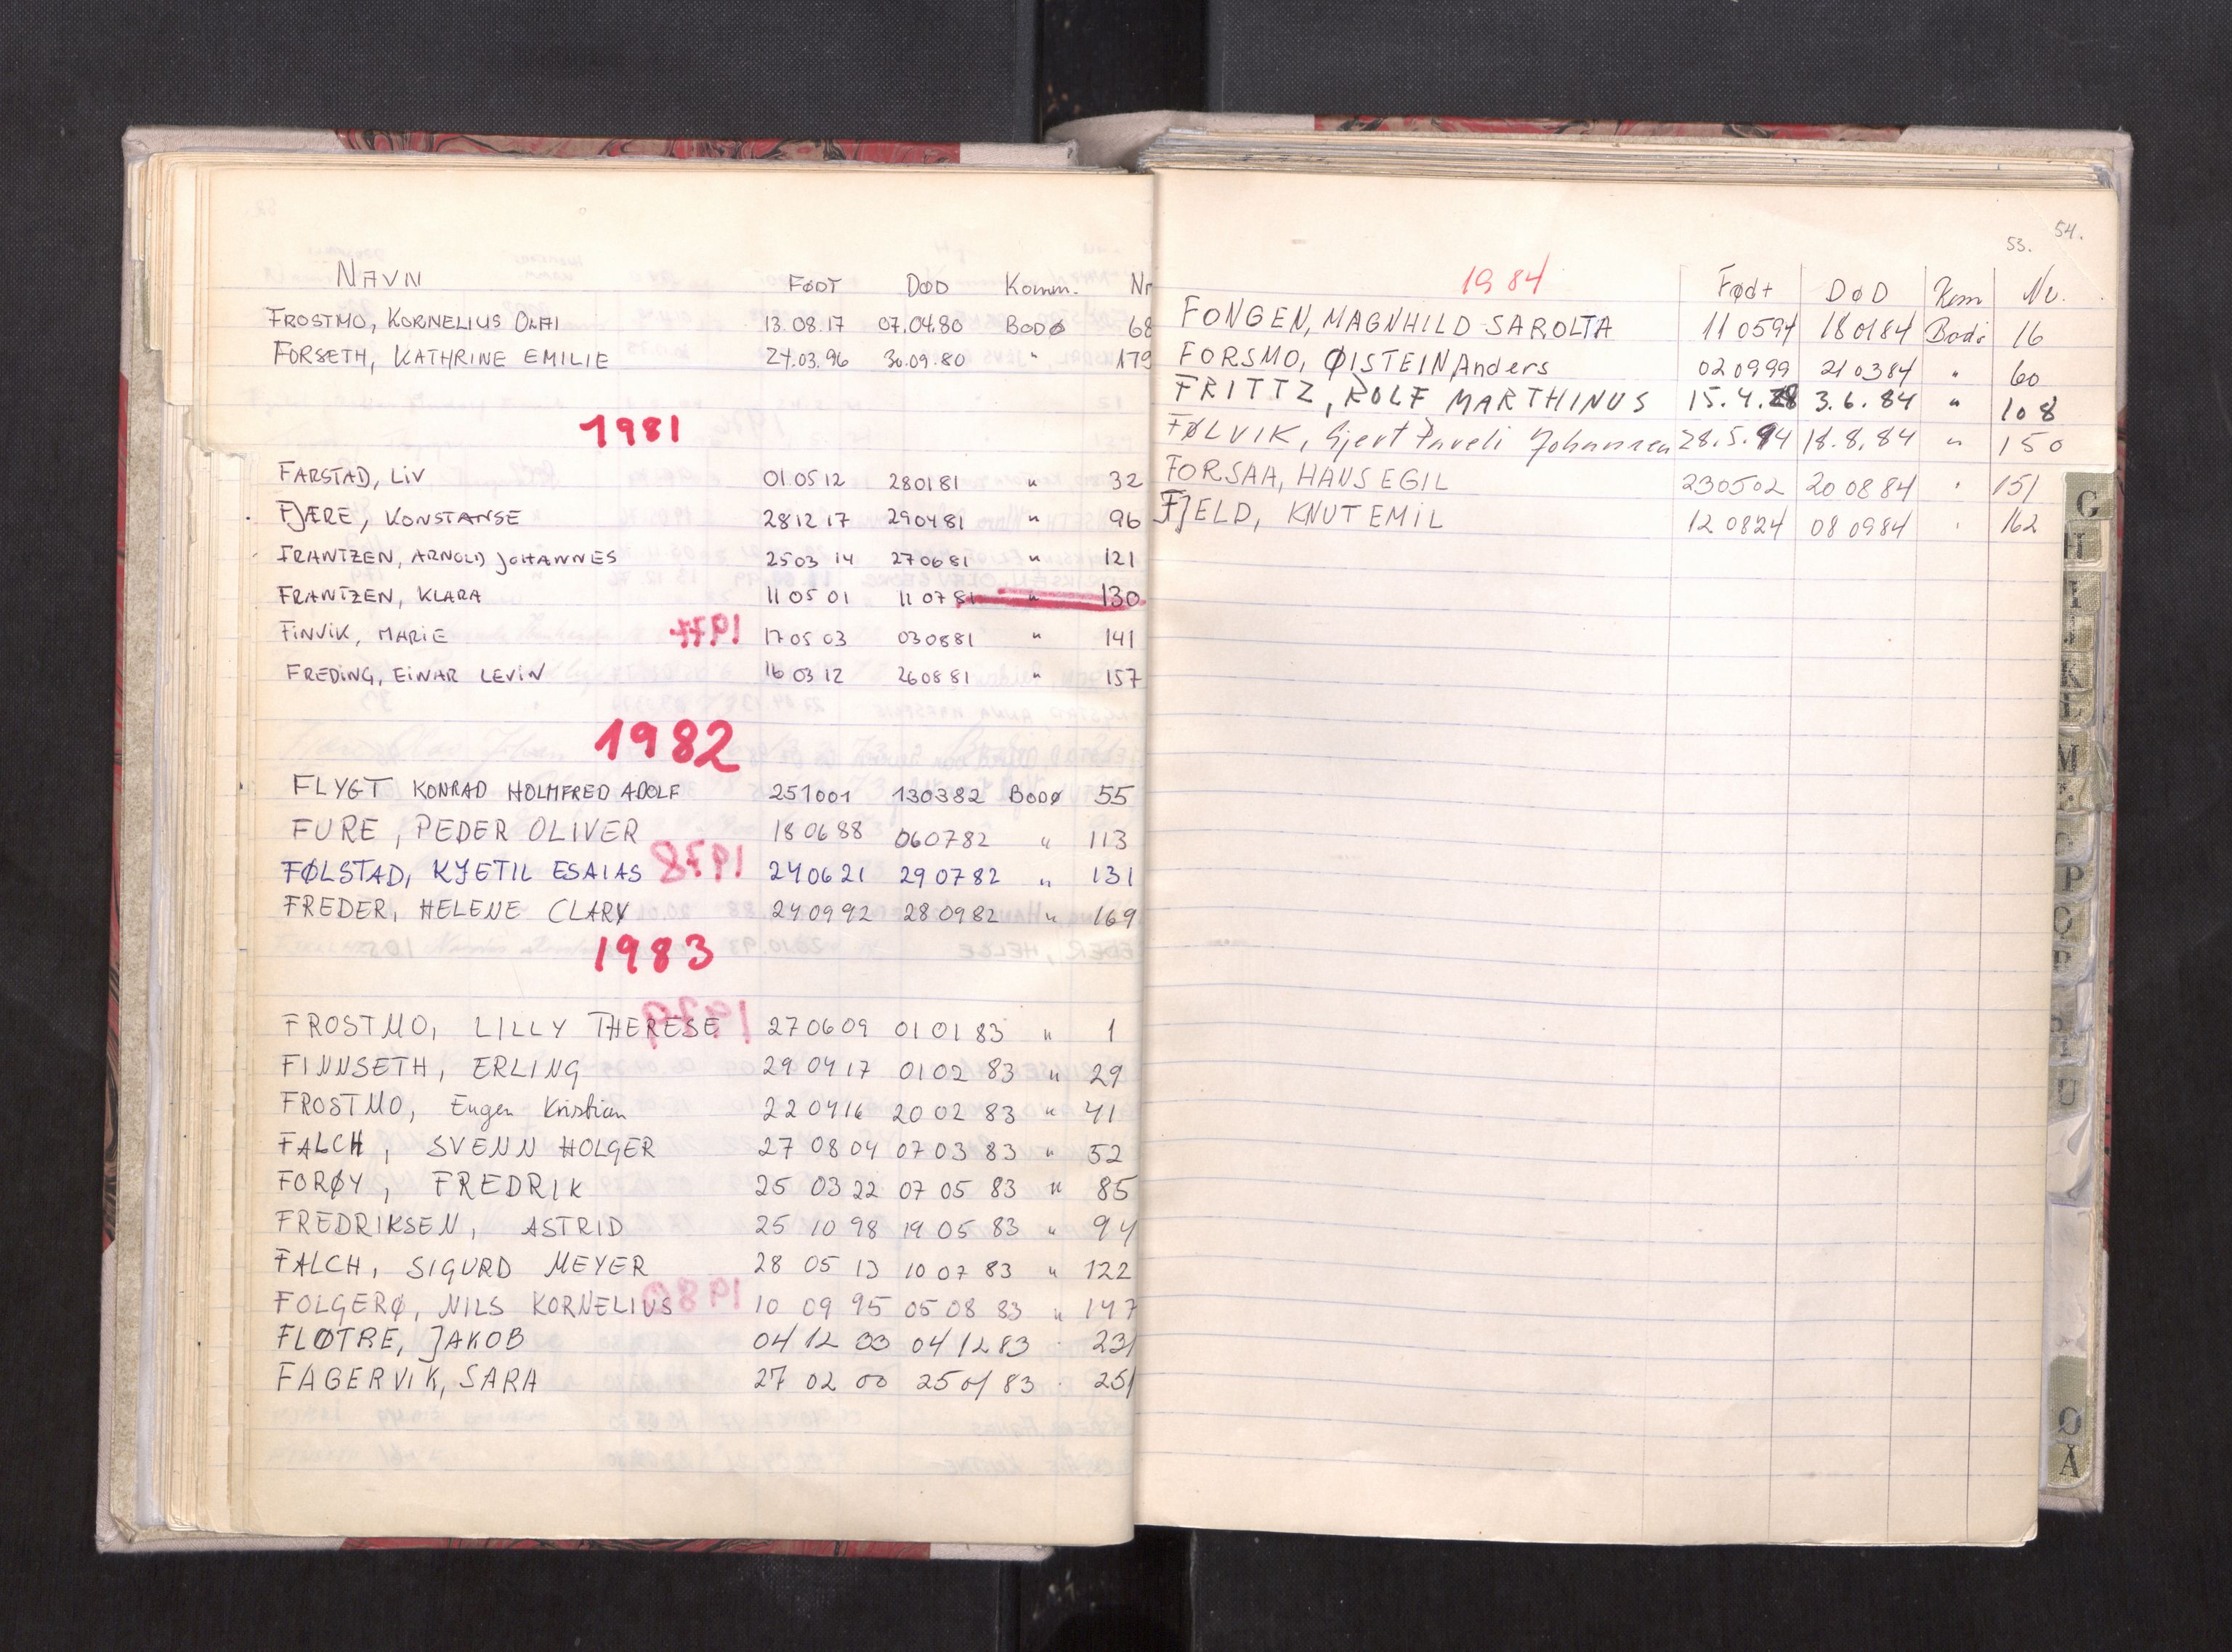 NAVN FØDT DØD Komm. Nr
FROSTMO, KORNELIUS OLAI 13.08.17 07.04.80 BODØ 68
FORSETH, KATHRINE EMILIE 24.03.96 30.09.80 " 179
1981
FARSTAD, LIV 010512 280181 " 32
FJÆRE, KONSTANSE 281217 290481 " 96
FRANTZEN, ARNOLD JOHANNES 250314 270681 " 121
FRANTZEN, KLARA 110501 110781 " 130
FINVIK, MARIE 170503 030881 " 141
FREDING, EINAR LEVIN 160312 260881 " 157
1982
FLYGT KONRAD HOLMFRED ADOLF 251001 130382 BODØ 55
FURE, PEDER OLIVER 180688 060782 " 113
FØLSTAD, KJETIL ESAIAS 240621 290782 " 131
FREDER, HELENE CLARY 240992 280982 " 169
1983
FROSTMO, LILLY THERESE 270609 010183 " 1
FINNSETH, ERLING 290417 010283 " 29
FROSTMO, Eugen Kristian 220416 200283 " 41
FALCH, SVENN HOLGER 270804 070383 " 52
FORØY, FREDRIK 250322 070583 " 85
FREDRIKSEN, ASTRID 251098 190583 " 94
FALCH, SIGURD MEYER 280513 100783 " 122
FOLGERØ, NILS KORNELIUS 100995 050883 " 147
FLØTRE, JAKOB 041203 041283 " 231
FAGERVIK, SARA 270200 250183 " 251
53. 54.
1984 Født DØD Kom Nr.
FONGEN, MAGNHILD SAROLTA 110594 180184 Bodø 16
FORSMO, ØISTEIN Anders 020999 210384 " 60
FRITTZ, ROLF MARTHINUS 15.4.28 3.6.84 " 108
FØLVIK, Gjert Johannes 28.5.94 18.8.84 " 150
FORSAA, HANS EGIL 230502 200884 " 151
FJELD, KNUT EMIL 120824 080984 " 162
G
H
I
J
K
L
M
P
U
Ø
Å